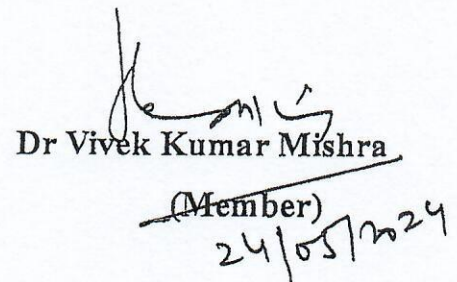 Dr Vivek Kumar Mishra
(Member)
24/05/2024